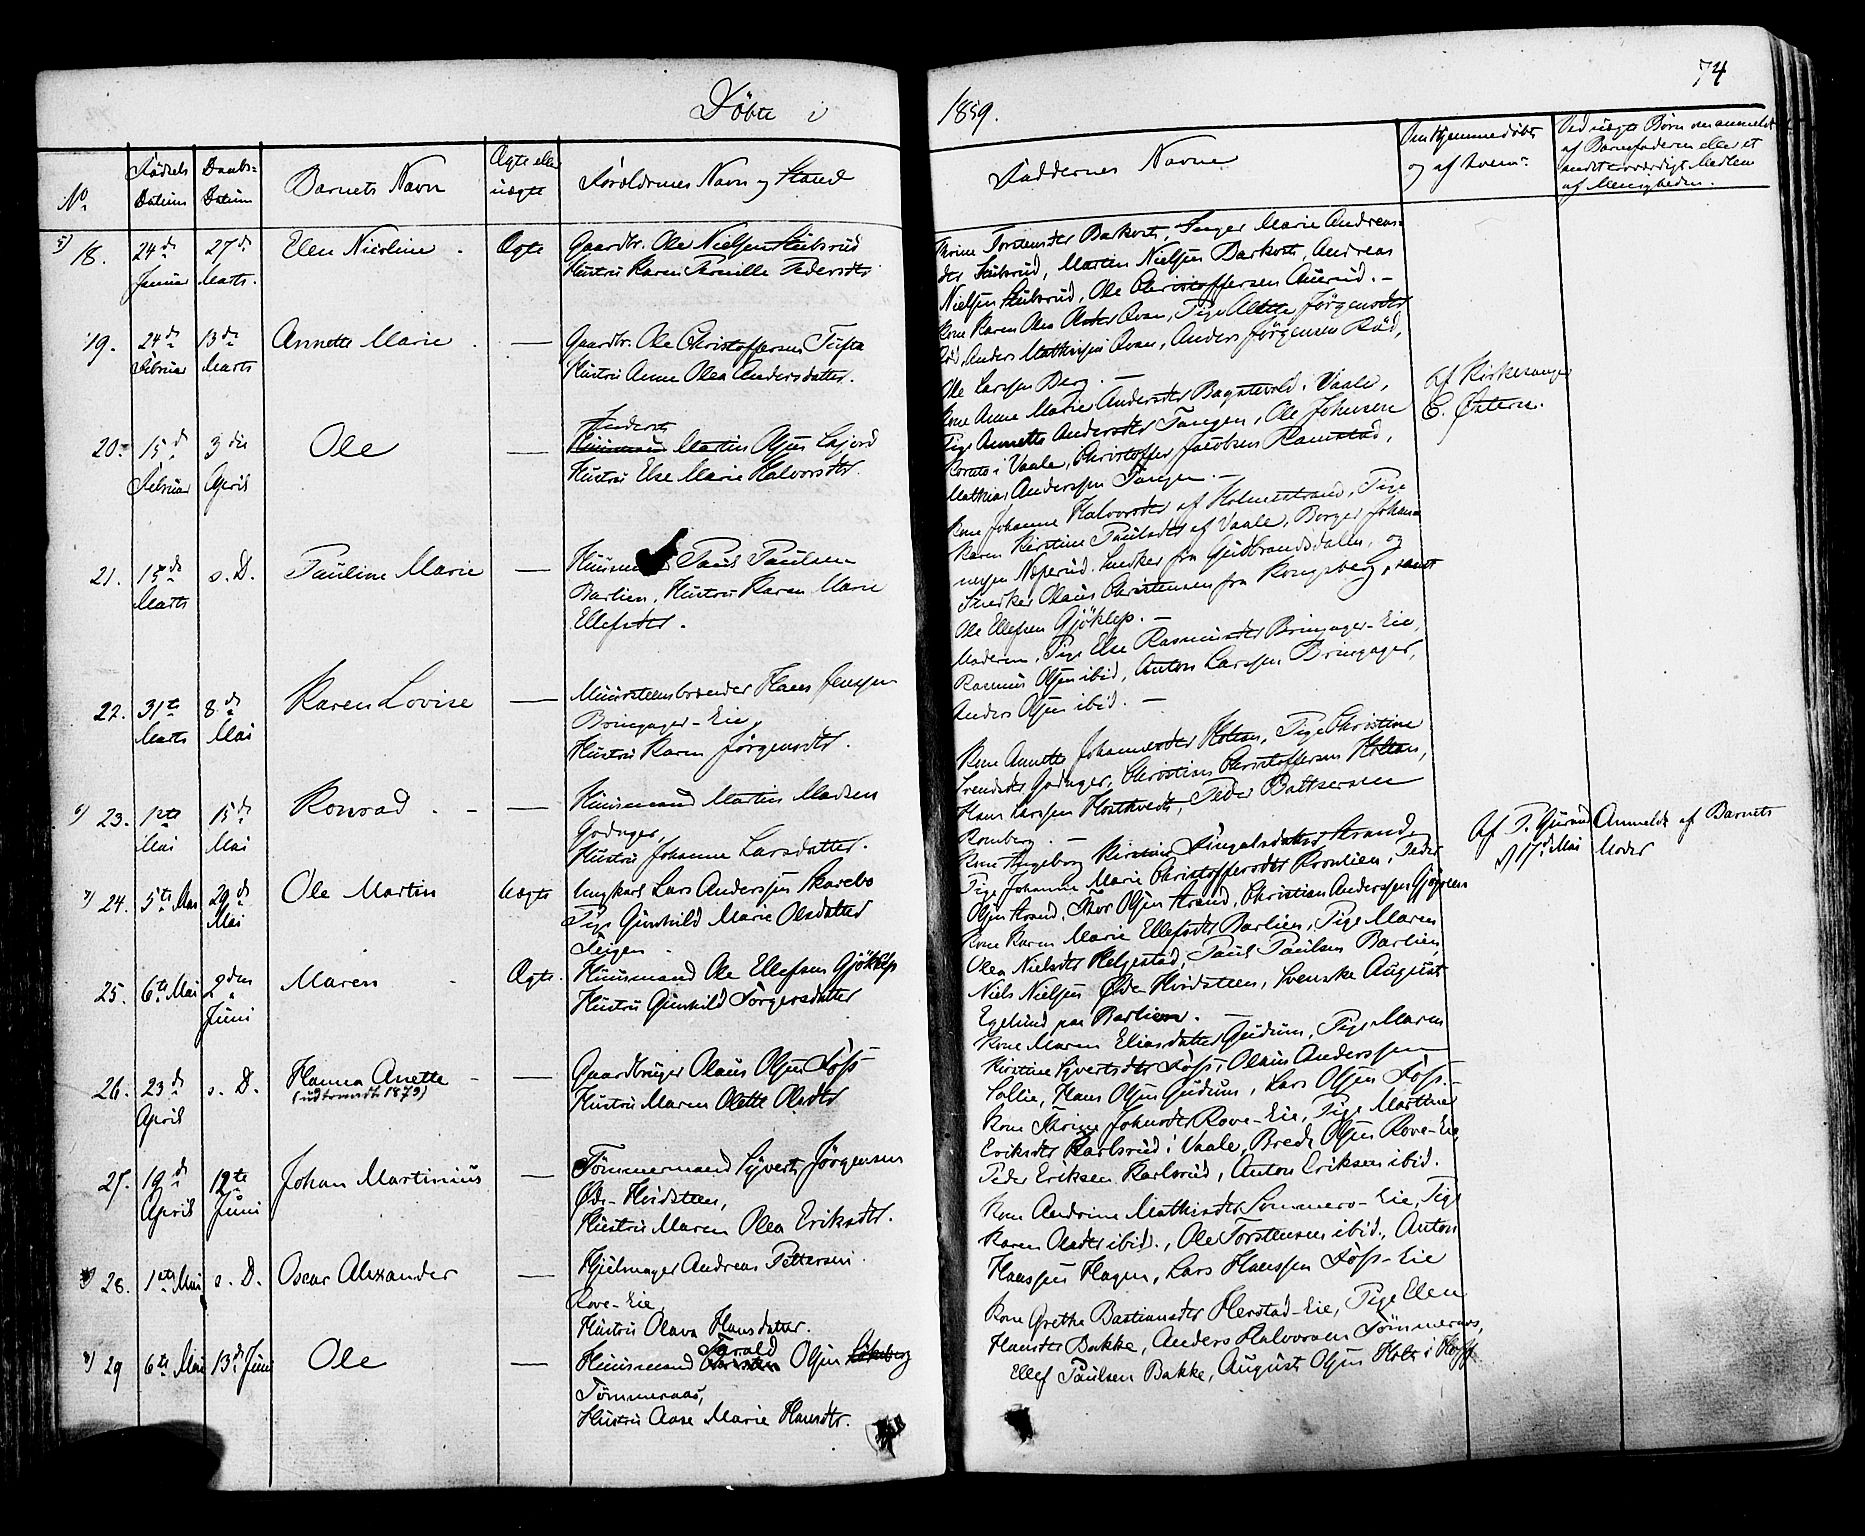 Døbte i
1859.
74
No.
Fødsels Datum
Daabs-Datum
Barnets Navn
Ægte eller uægte
Forældrenes Navn og Stand
Faddernes Navne
Om hjemmedøbt og af hvem
Ved uægte Børn om anmeldt
af Barnefaderen eller et
andet troværdigt Medlem
af Menigheden.
5) 18.
24de Januar
27de Marts.
Elen Nicoline
Ægte
Gaardbr. Ole Nielsen Stubsrud
Hustru Karen Pernille Pedersdtr
Thrine Torstensdtr Barkost, Inger Marie Andreas-
dtr Stubsrud, Martin Nielsen Barkost, Andreas
Nielsen Stubsrud, Ole Christoffersen Auerud. -
19.
24de Februar
13de Marts
Annette Marie
—
Gaardbr. Ole Christoffersen Tufta
Hustru Anne Olea Andersdatter.
Kone Karen Olea Olsdtr Qvan, Pige Alette Jørgensdtr
Rød, Anders Mathisen Qvan, Anders Jørgensen Rød,
Ole Larssen Berg. —
20.
15de Februar
3die April
Ole
—
Inderst
Huusmand Martin Olsen Lajord
Hustru Else Marie Halvorsdtr.
Kone Anne Marie Andersdtr Bagstevold i Vaale,
Pige Annette Andersdtr Tangen, Ole Johnsen
i Vaale, Christoffer Jacobsen Ramstad,
Mathias Anderssen Tangen. —
Af Kirkesanger
C. Østern.
21.
15de Marts
s. D.
Pauline Marie
—
Huusmand Paul Paulsen
Barlien, Hustru Karen Marie
Ellefsdtr.
Kone Johanne Halvorsdtr af Holmestrand, Pige
Karen Kirstine Paulsdtr af Vaale, Borger Johan
Næperud, Snedker fra Gudbrandsdalen, og
Snedker Olaus Christensen fra Kongsberg, samt
Ole Ellefsen Gjøklep. —
22.
31te Marts
8de Mai
Karen Lovise
—
Muursteensbrænder Hans Jenssen
Bringager-Eie,
Hustru Karen Jørgensdtr.
Moderen, Pige Else Rasmusdtr Bringager-Eie,
Rasmus Olsen ibid, Anton Larssen Bringager,
Anders Olsen ibid. —
6) 23.
1ste Mai
15de Mai
Konrad
—
Huusmand Martin Madsen
Godager,
Hustru Johanne Larsdatter.
Kone Annette Johannesdtr Holtan, Pige Christine
Svendsdtr Godager, Christian Christoffersen Holtan,
Hans Larssen Hosthvedt, Peder Baltsersen
Romberg. —
7) 24.
5te Mai
29de Mai
Ole Martin
Uægte
Ungkarl Lars Anderssen Skarebo
Pige Gunhild Marie Olsdatter
Teigen.
Kone Ingeborg Kirstine Singalsdatter Strand,
Pige Johanne Marie Christoffersdtr Kronlien, Peder
Olsen Strand, Thor Olsen Strand, Christian Anderssen
Af P. Gurand
d 17de Mai
Anmeldt af Barnets
Moder
25.
6te Mai
2den Juni
Maren
Ægte.
Huusmand Ole Ellefsen Gjøklep
Hustru Gunhild Torgersdatter
Kone Karen Marie Ellefsdtr Barlien, Pige Maren
Olea Nielsdtr Helgestad, Paul Paulsen Barlien,
Niels Nielsen Øde-Hvidsteen, Svenske August
Egelund paa Barlien. —
26.
23de April
s. D.
Hanna Anette
(udtraadt 1879)
—
Gaardbruger Olaus Olsen Foss
Hustru Maren Olette Olsdtr
Kone Maren Eliasdatter Gudum, Pige Maren
Kirstine Syvertsdtr Foss, Olaus Anderssen
Sollie, Hans Olsen Gudum, Lars Olsen Foss.
27.
19de April
12te Juni
Johan Martinius
—
Tømmermand Syvert Jørgensen
Øde-Hvidsteen,
Hustru Maren Olea Eriksdtr.
Kone Thrine Johnsdtr Rove-Eie, Pige Marthe
Eriksdtr Karlsrud i Vaale, Brede Olsen Rove-Eie,
Peder Eriksen Karlsrud, Anton Eriksen ibid.
28.
1ste Mai
s. D.
Oscar Alexander
—
Hjulmager Andreas Pettersen
Rove-Eie
Hustru Olava Hansdatter.
Kone Andrine Mathisdtr Sommero-Eie, Pige
Karen Olsdtr ibid., Ole Torstensen ibid., Anton
Hanssen Hagen, Lars Hanssen Foss-Eie
29
6te Mai
13de Juni
Ole
—
Tarald
Huusmand Olsen
Tømmeraas,
Hustru Aase Marie Hansdtr.
Kone Grethe Bastiansdtr Herstad-Eie, Pige Elen
Hansdtr Bakke, Anders Halvorsen Tømmeraas,
Ellef Paulsen Bakke, August Olsen Holt i Hoff